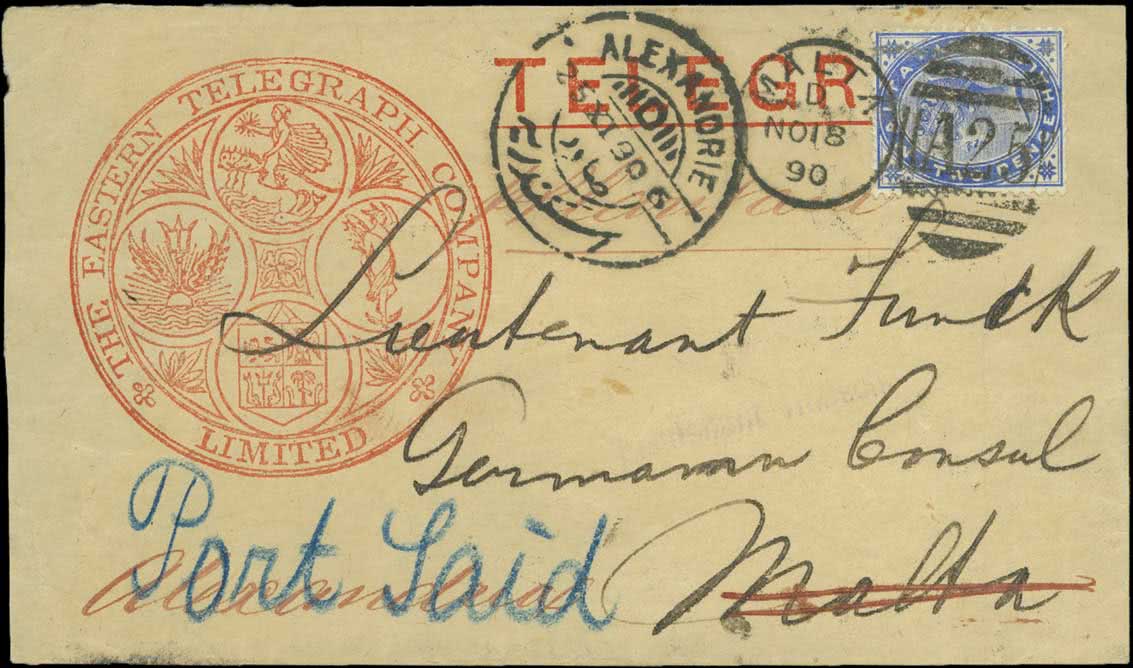 THE EASTERN TELEGRAPH COMPANY
LIMITED
TELEGR
ALEXANDRIE
XI 90 6
MALTA
D
NO 18
90
MALTA
A25
Alexandria
Lieutenant Funck
Germann Consul
Malta
Port Said
Alexandria